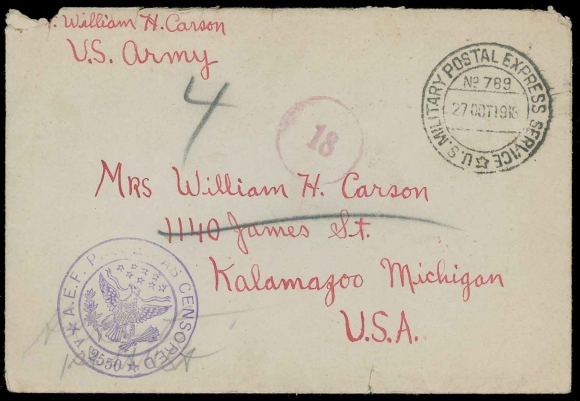 William H. Carson
U.S. Army
4
18
U.S. MILITARY POSTAL EXPRESS SERVICE
No 789
27 OCT 1918
Mrs William H. Carson
1140 James St.
Kalamazoo Michigan
U.S.A.
A.E.F. P AS CENSORED
2550